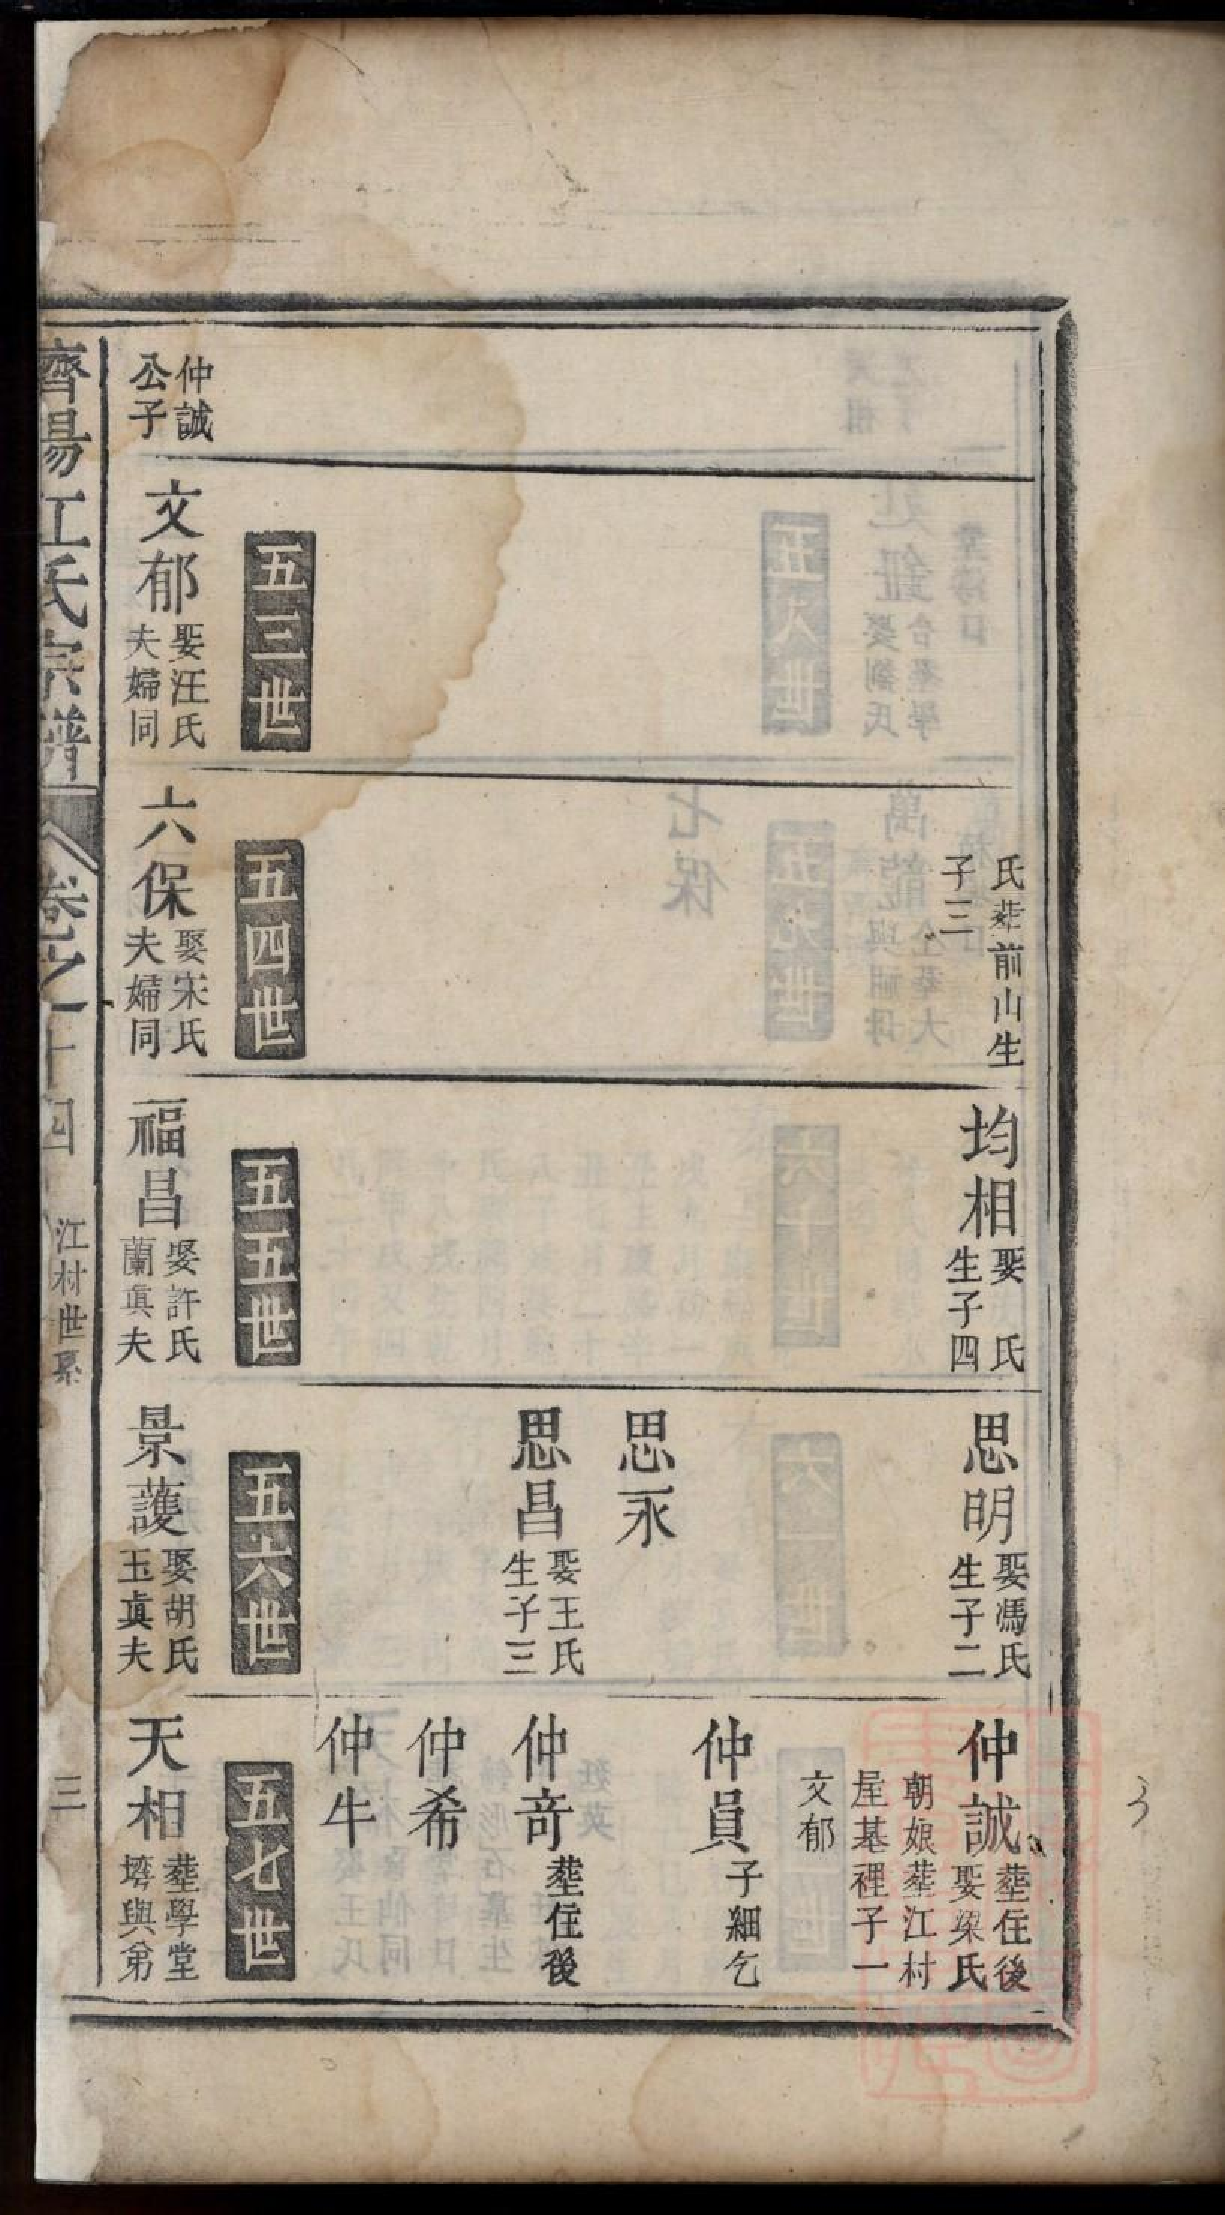 氏塟前山生
子三
均相
娶　氏
生子四
思明
娶馮氏
生子二
仲誠
塟住後
娶梁氏
朝娘塟江村
屋基裡子一
文郁
仲員
子細乞
思永
思昌
娶王氏
生子三
仲竒
塟住後
仲希
仲牛
五三世
五四世
五五世
五六世
五七世
仲誠
公子
文郁
娶汪氏
夫婦同
六保
娶宋氏
夫婦同
福昌
娶許氏
蘭眞夫
景護
娶胡氏
玉眞夫
天相
塟學堂
塆與弟
濟陽江氏宗譜
卷之十四
江村世系
三